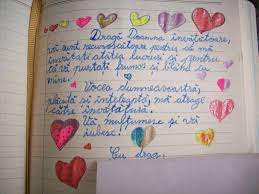 Dragă Doamna învățătoare,
vă sunt recunoscătoare pentru că mă
învățați atâtea lucruri și pentru
că vă purtați frumos și blând cu
mine.
Vocea dumneavoastră,
plăcută și înțeleaptă, mă atrage
către învățătură.
Vă mulțumesc și vă
iubesc!
Cu drag,